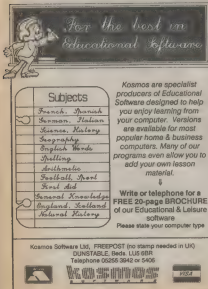 For the best in
Educational Software
Subjects
French, Spanish
German, Italian
Science, History
Geography
English Words
Spelling
Arithmetic
Football, Sport
First Aid
General Knowledge
England, Scotland
Natural History
Kosmos are specialist
producers of Educational
Software designed to help
you enjoy learning from
your computer. Versions
are available for most
popular home & business
computers. Many of our
programs even allow you to
add your own lesson
material.
Write or telephone for a
FREE 20-page BROCHURE
of our Educational & Leisure
software
Please state your computer type
Kosmos Software Ltd, FREEPOST (no stamp needed in UK)
DUNSTABLE, Beds. LU5 6BR
Telephone 05255 3942 or 5406
kosmos
VISA